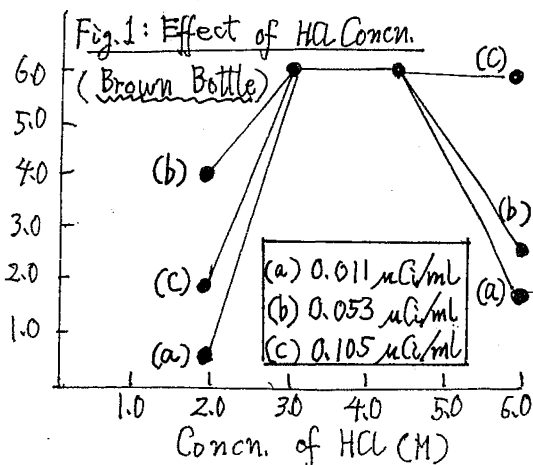 Fig.1: Effect of HCl Concn.
(Brown Bottle)
6.0
5.0
4.0
3.0
2.0
1.0
(c)
(b)
(b)
(c)
(a)
(a)
(a) 0.011 μCi/ml
(b) 0.053 μCi/ml
(c) 0.105 μCi/ml
1.0 2.0 3.0 4.0 5.0 6.0
Concn. of HCl (M)